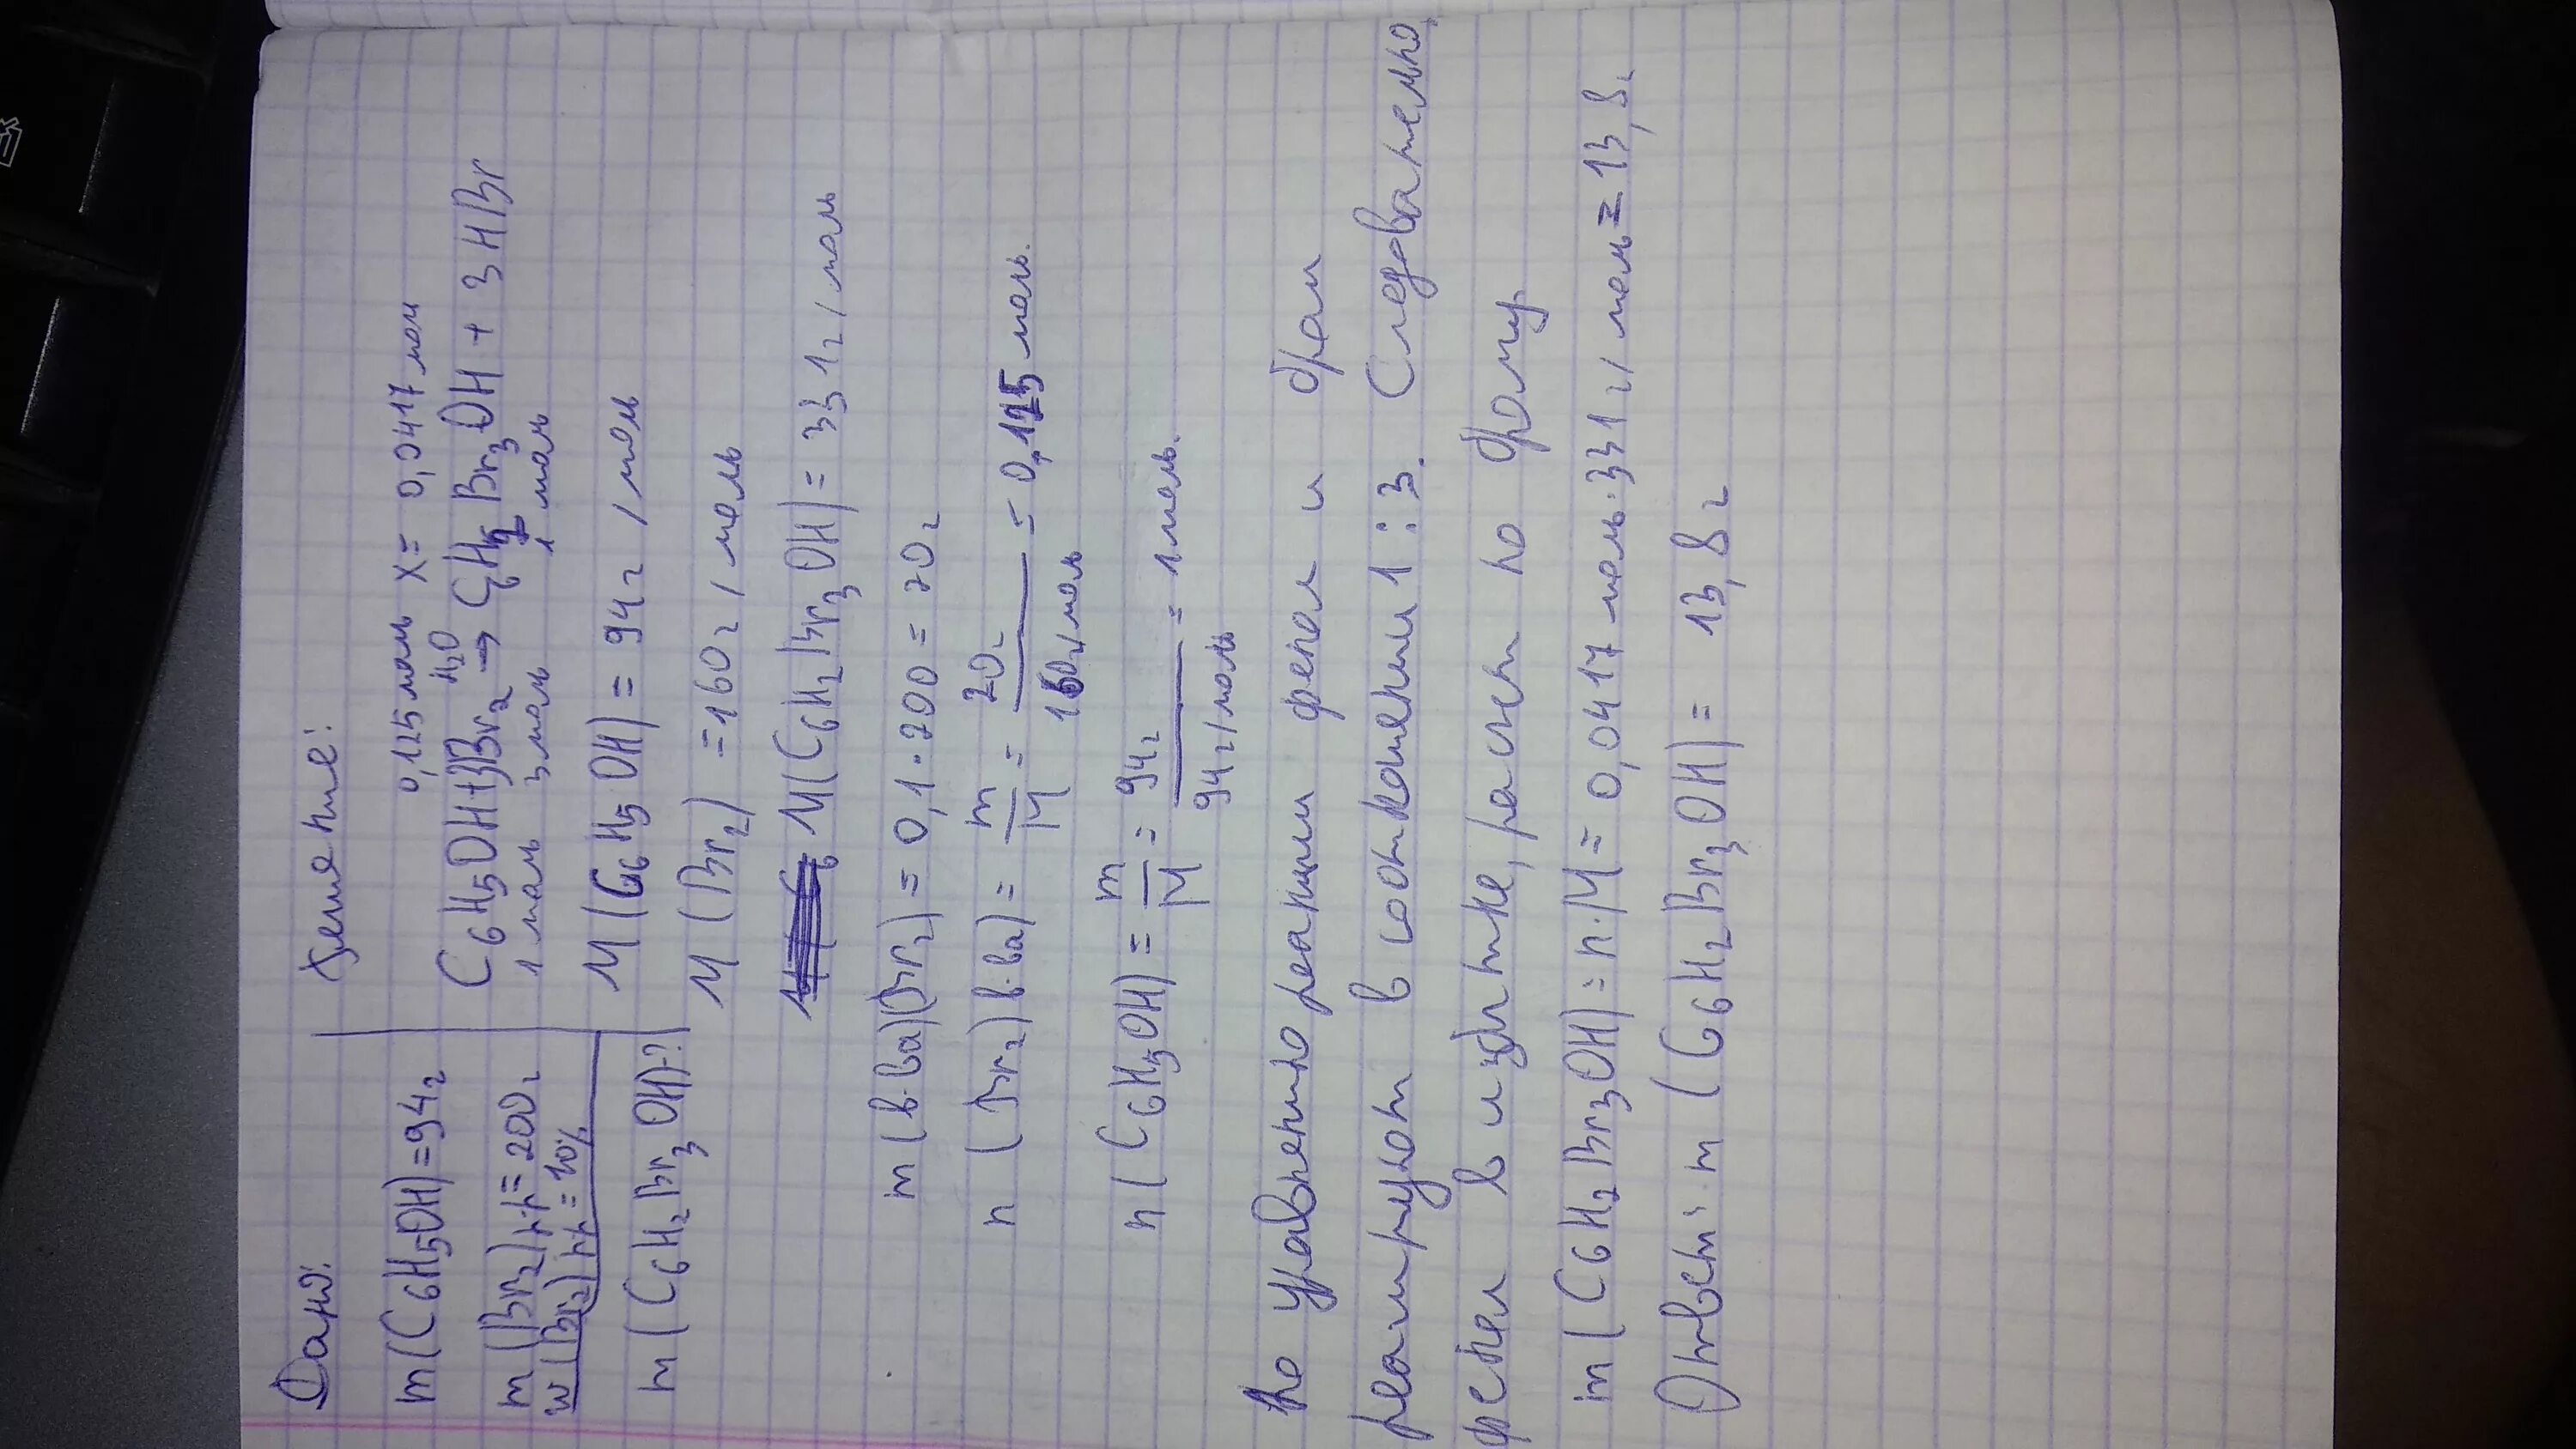 Дано:
m(C6H5OH)=94г
m(Br2)р-р=200г
w(Br2)р-р=10%
m(C6H2Br3OH)-?
Решение:
0,125моль x=0,0417мол
C6H5OH+3Br2 H2O→ C6H2Br3OH+3HBr
1 моль 3моль 1 моль
M(C6H5OH)=94г/моль
M(Br2)=160г/моль
M(C6H2Br3OH)=331г/моль
m(в-ва)(Br2)=0,1·200=20г
n(Br2)в-ва)=m/M=20г/160г/моль=0,125моль.
n(C6H5OH)=m/M=94г/94г/моль=1моль.
По уравнению реакции фенол и бром
реагируют в соотношении 1:3. Следовательно,
фенол в избытке, расчет по брому
m(C6H2Br3OH)=n·M=0,0417моль·331г/моль=13,8г
Ответ: m(C6H2Br3OH)=13,8г